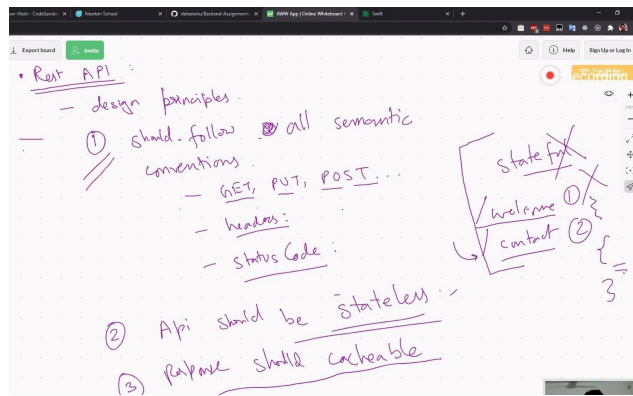 Newton School
debanshu/Backend-Assignment:
AWW App | Online Whiteboard
Swift
Export board
Invite
Help
Sign Up or Log In
ecording
• Rest API :
- design principles.
① should follow all semantic
conventions.
- GET, PUT, POST...
- headers:
- status Code :
② Api should be stateless
③ response should cacheable
stateful
/welcome ① {
/ contact ② {
}